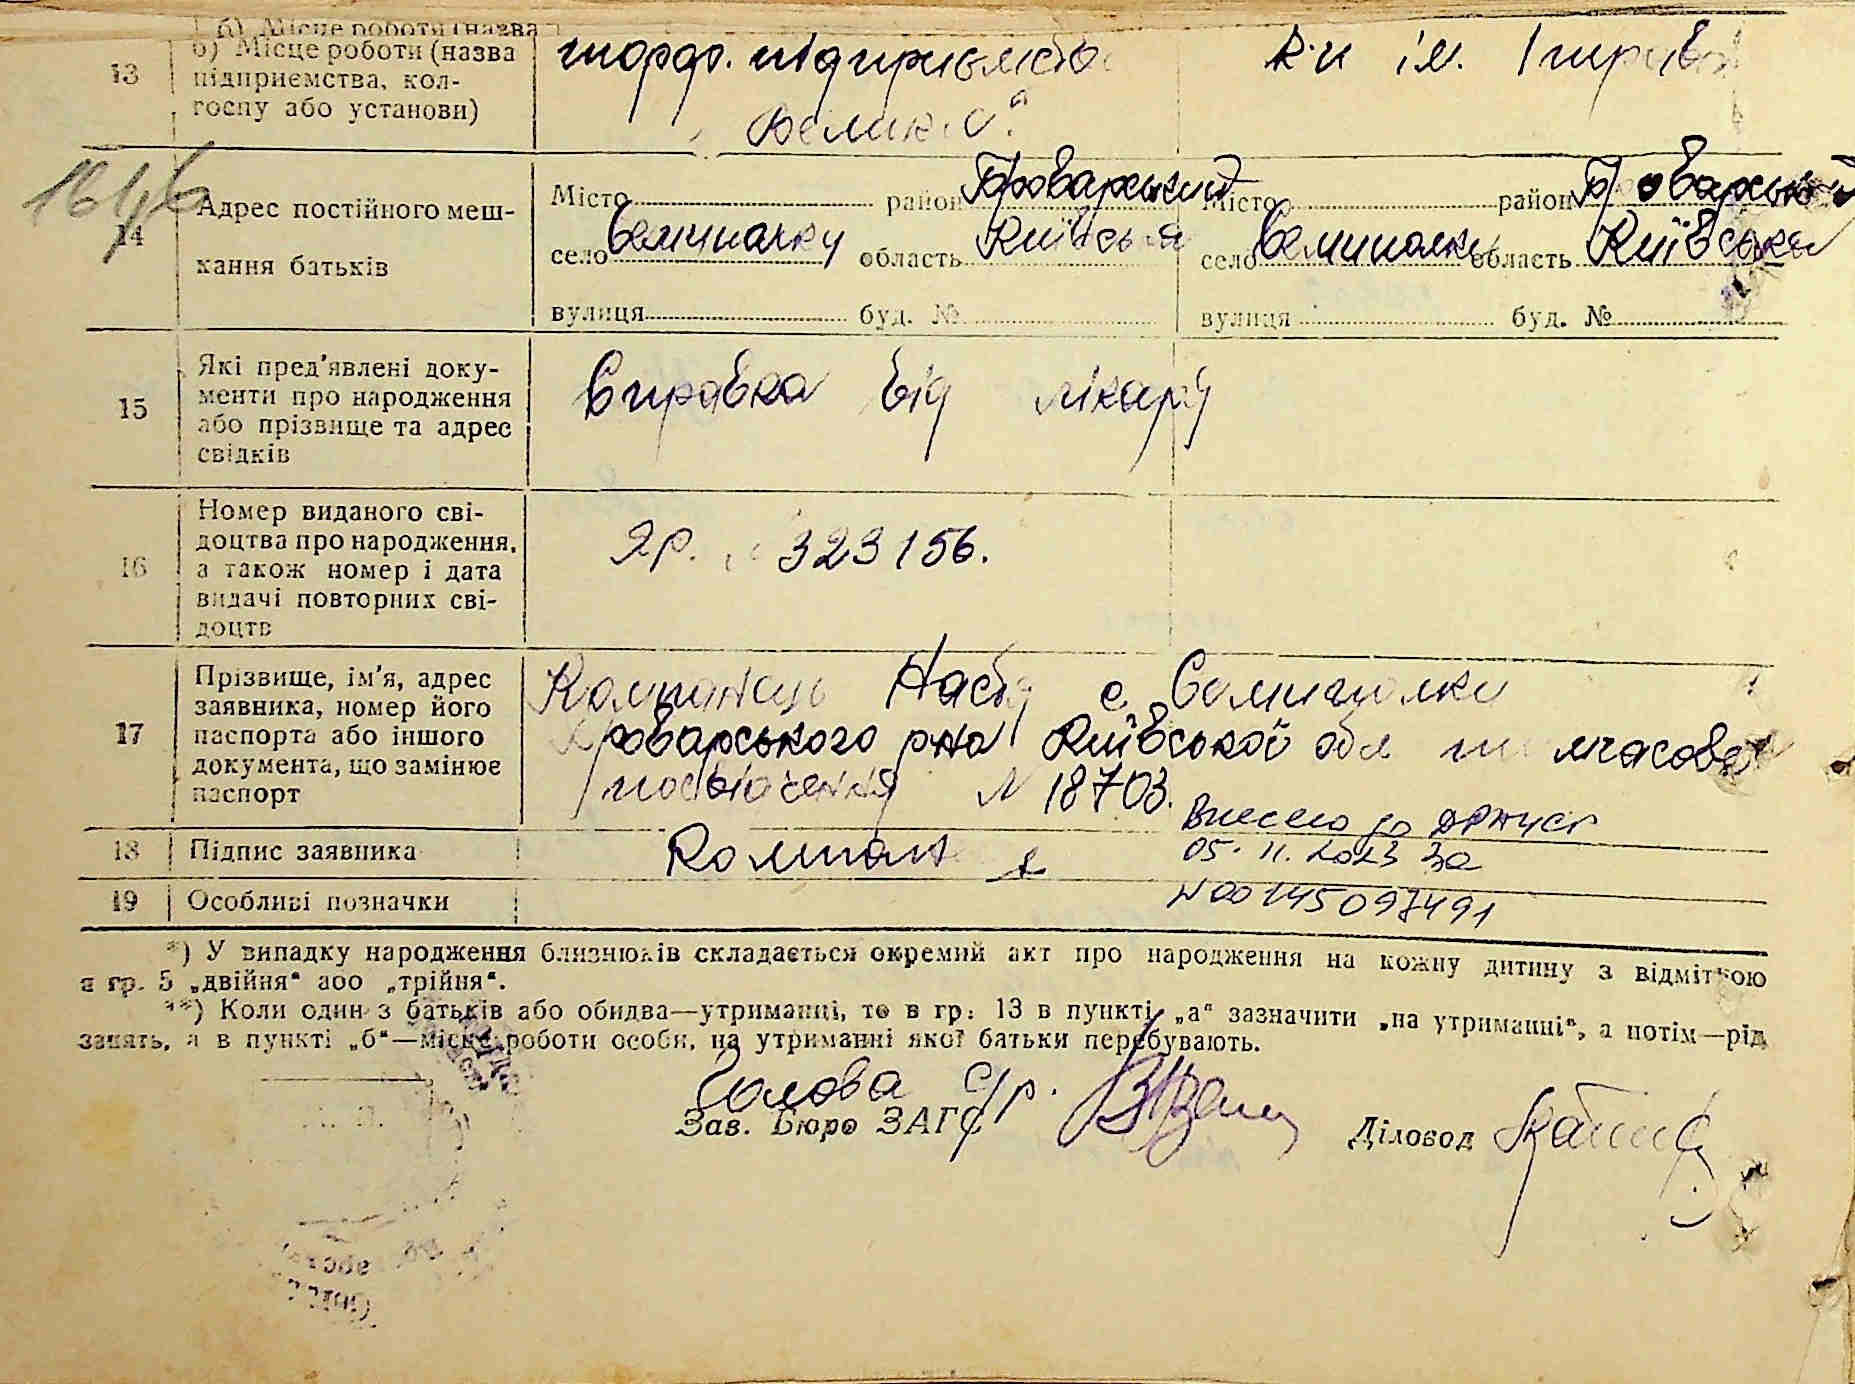 б) Місце роботи (назва
13 підприємства, кол-
госпу або установи)
торф. підприємство к-п ім. Кірова
"Велике"
161/6
Місто район Броварський Місто район Броварський
14 Адрес постійного меш-
кання батьків
село Семиполку область Київська село Семиполки область Київська
вулиця буд. № вулиця буд. №
15 Які пред'явлені доку-
менти про народження
або прізвище та адрес
свідків
Справка від лікаря
16 Номер виданого сві-
доцтва про народження,
а також номер і дата
видачі повторних сві-
доцтв
ЯР. 323156.
17 Прізвище, ім'я, адрес
заявника, номер його
паспорта або іншого
документа, що замінює
паспорт
Компанець Настя с. Семиполки
Броварського р-на Київської обл тимчасове
посвідчення N 18703.
18 Підпис заявника
Компан
Внесено до ДРАЦСГ
05.11.2023 за
19 Особливі позначки
N 00145097491
*) У випадку народження близнюків складається окремий акт про народження на кожну дитину з відміткою
в гр. 5 „двійня“ або „трійня“.
**) Коли один з батьків або обидва—утриманці, то в гр. 13 в пункті „а“ зазначити „на утриманні“, а потім—рід
занять, а в пункті „б“—місце роботи особи, на утриманні якої батьки перебувають.
Голова с/р.
Зав. Бюро ЗАГС Діловод